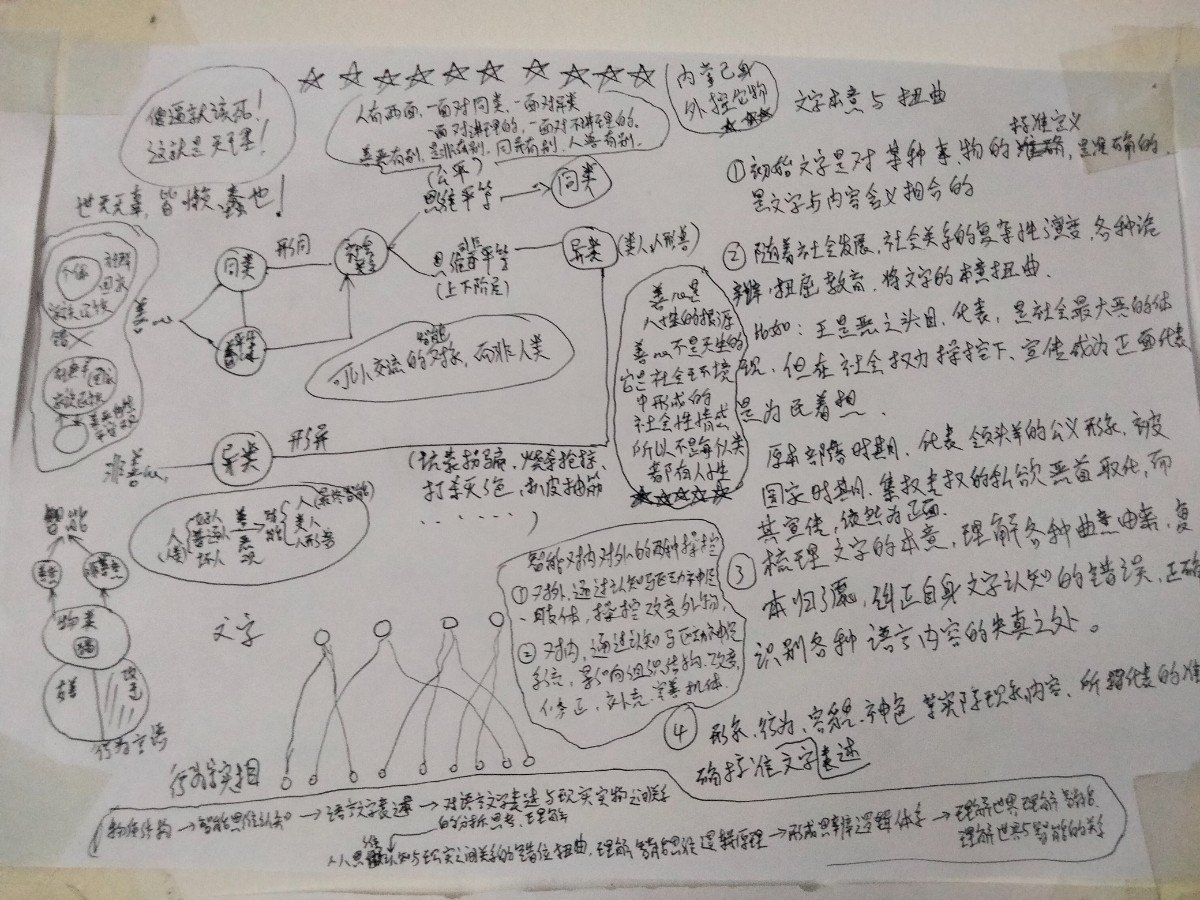 傻逼就该死！
这就是天理！
世无无辜，皆懒、蠢也！
人有两面，一面对同类，一面对异类
一面对讲理的，一面对不讲理的。
善恶有别，是非有别，同异有别，人兽有别。
内掌己身
外控它物
文字本意与扭曲
(公平)
思维平等
同类
形同
同类
社会
思维非平等
(上下阶层)
异类
(类人、人形兽)
善
可以交流的智能对象，而非人类
善是
人性的根源
善不是天生的
它是社会环境
中形成的
社会性情感
所以不是每似类
者都有人性
个体
社群
国家
家族
错
非善
异类
形异
(坑蒙拐骗，烧杀抢掠，
打杀灭绝，扒皮抽筋
……)
人(最终智能)
好人
普通人
坏人
善
恶
观
类人
人形兽
智能
物类
行为言语
文字
行为等实相
①初始文字是对某种事物的标准定义，是准确的，
是文字与内容含义相合的
②随着社会发展，社会关系的复杂性演变，各种诡
辩，扭曲教育，将文字的本意扭曲．
比如：王是恶之头目，代表，是社会最大恶的体
现，但在社会权力操控下、宣传成为正面代表
是为民着想．
原本部落时期，代表领头羊的公义形象，被
国家时期，集权专权的私欲恶首取代，而
其宣传，依然为正面．
③梳理文字的本意，理解各种曲意由来，复
本归源，纠正自身文字认知的错误，正确
识别各种语言内容的失真之处。
④形象、行为、容貌、神色等实际现象内容、所代表的准
确标准文字表述
智能对内对外的两种操控
①对外，通过认知与运动神经
肢体，操控改变外物，
②对内，通过认知与运动神经
系统，影响组织结构，改变，
修正，补充，完善机体．
物质结构→智能思维认知→语言文字表述→对语言文字表述与现实实物之间关系
的分析思考、理解
人人思维认知与现实之间关系的错位扭曲，理解智能思维逻辑原理→形成思辨逻辑体系→理解世界理解智能，
理解世界与智能的关系